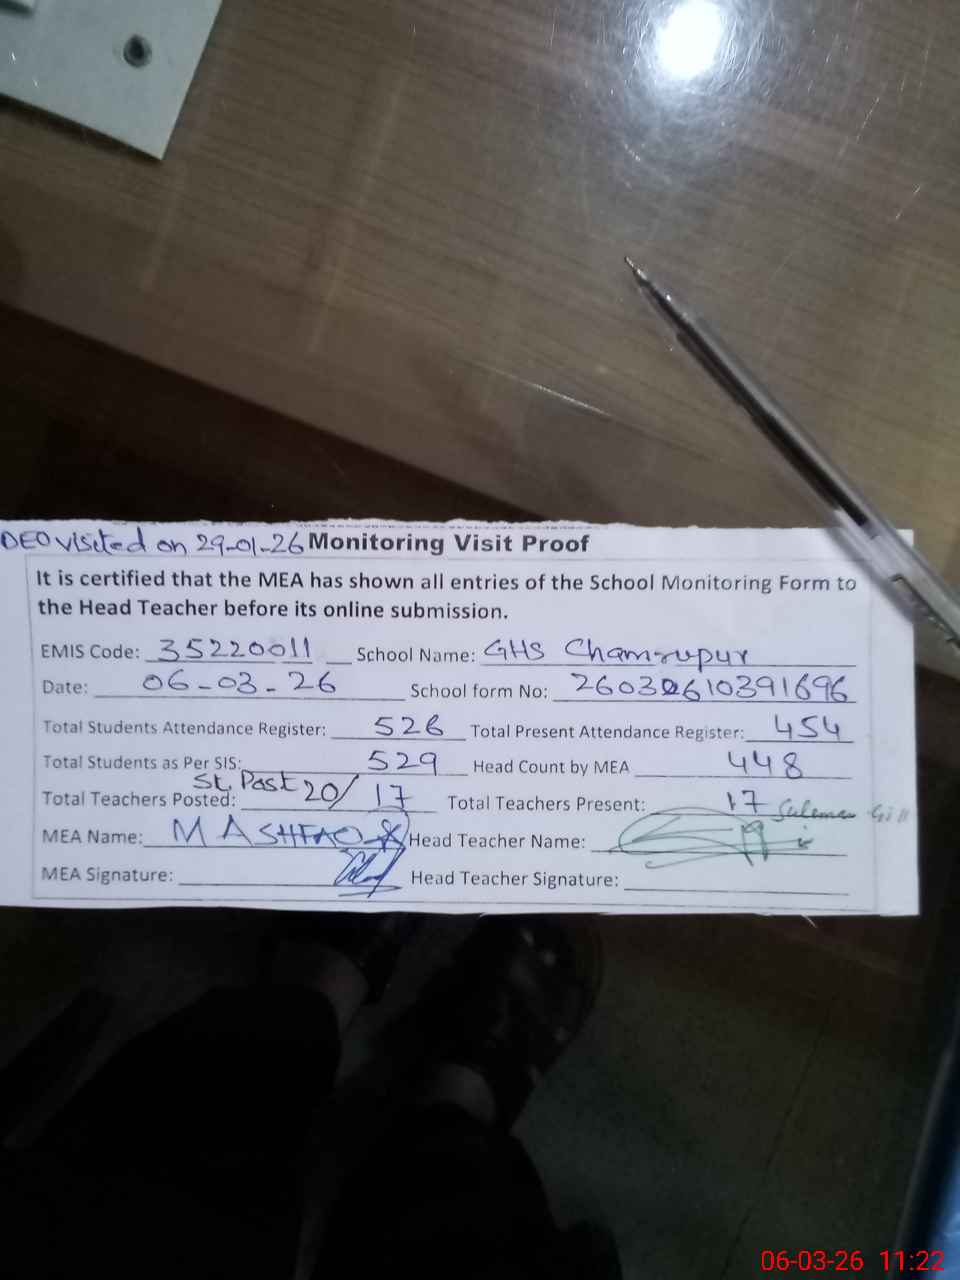 DEO visited on 29-01-26 Monitoring Visit Proof
It is certified that the MEA has shown all entries of the School Monitoring Form to
the Head Teacher before its online submission.
EMIS Code: 35220011 School Name: GHS Chamrupur
Date: 06-03-26 School form No: 26030610391696
Total Students Attendance Register: 526 Total Present Attendance Register: 454
Total Students as Per SIS: 529 Head Count by MEA 448
St. Post
Total Teachers Posted: 20/17 Total Teachers Present: 17
MEA Name: M ASHFAQ Head Teacher Name:
MEA Signature: Head Teacher Signature:
06-03-26 11:22